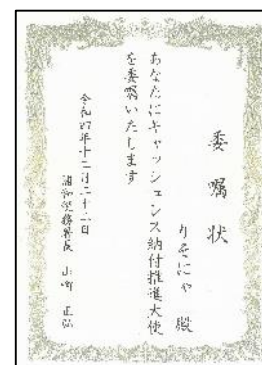 委嘱状
りそにゃ 殿
あなたにキャッシュレス納付推進大使
を委嘱いたします
令和四年十二月二十二日
浦和税務署長